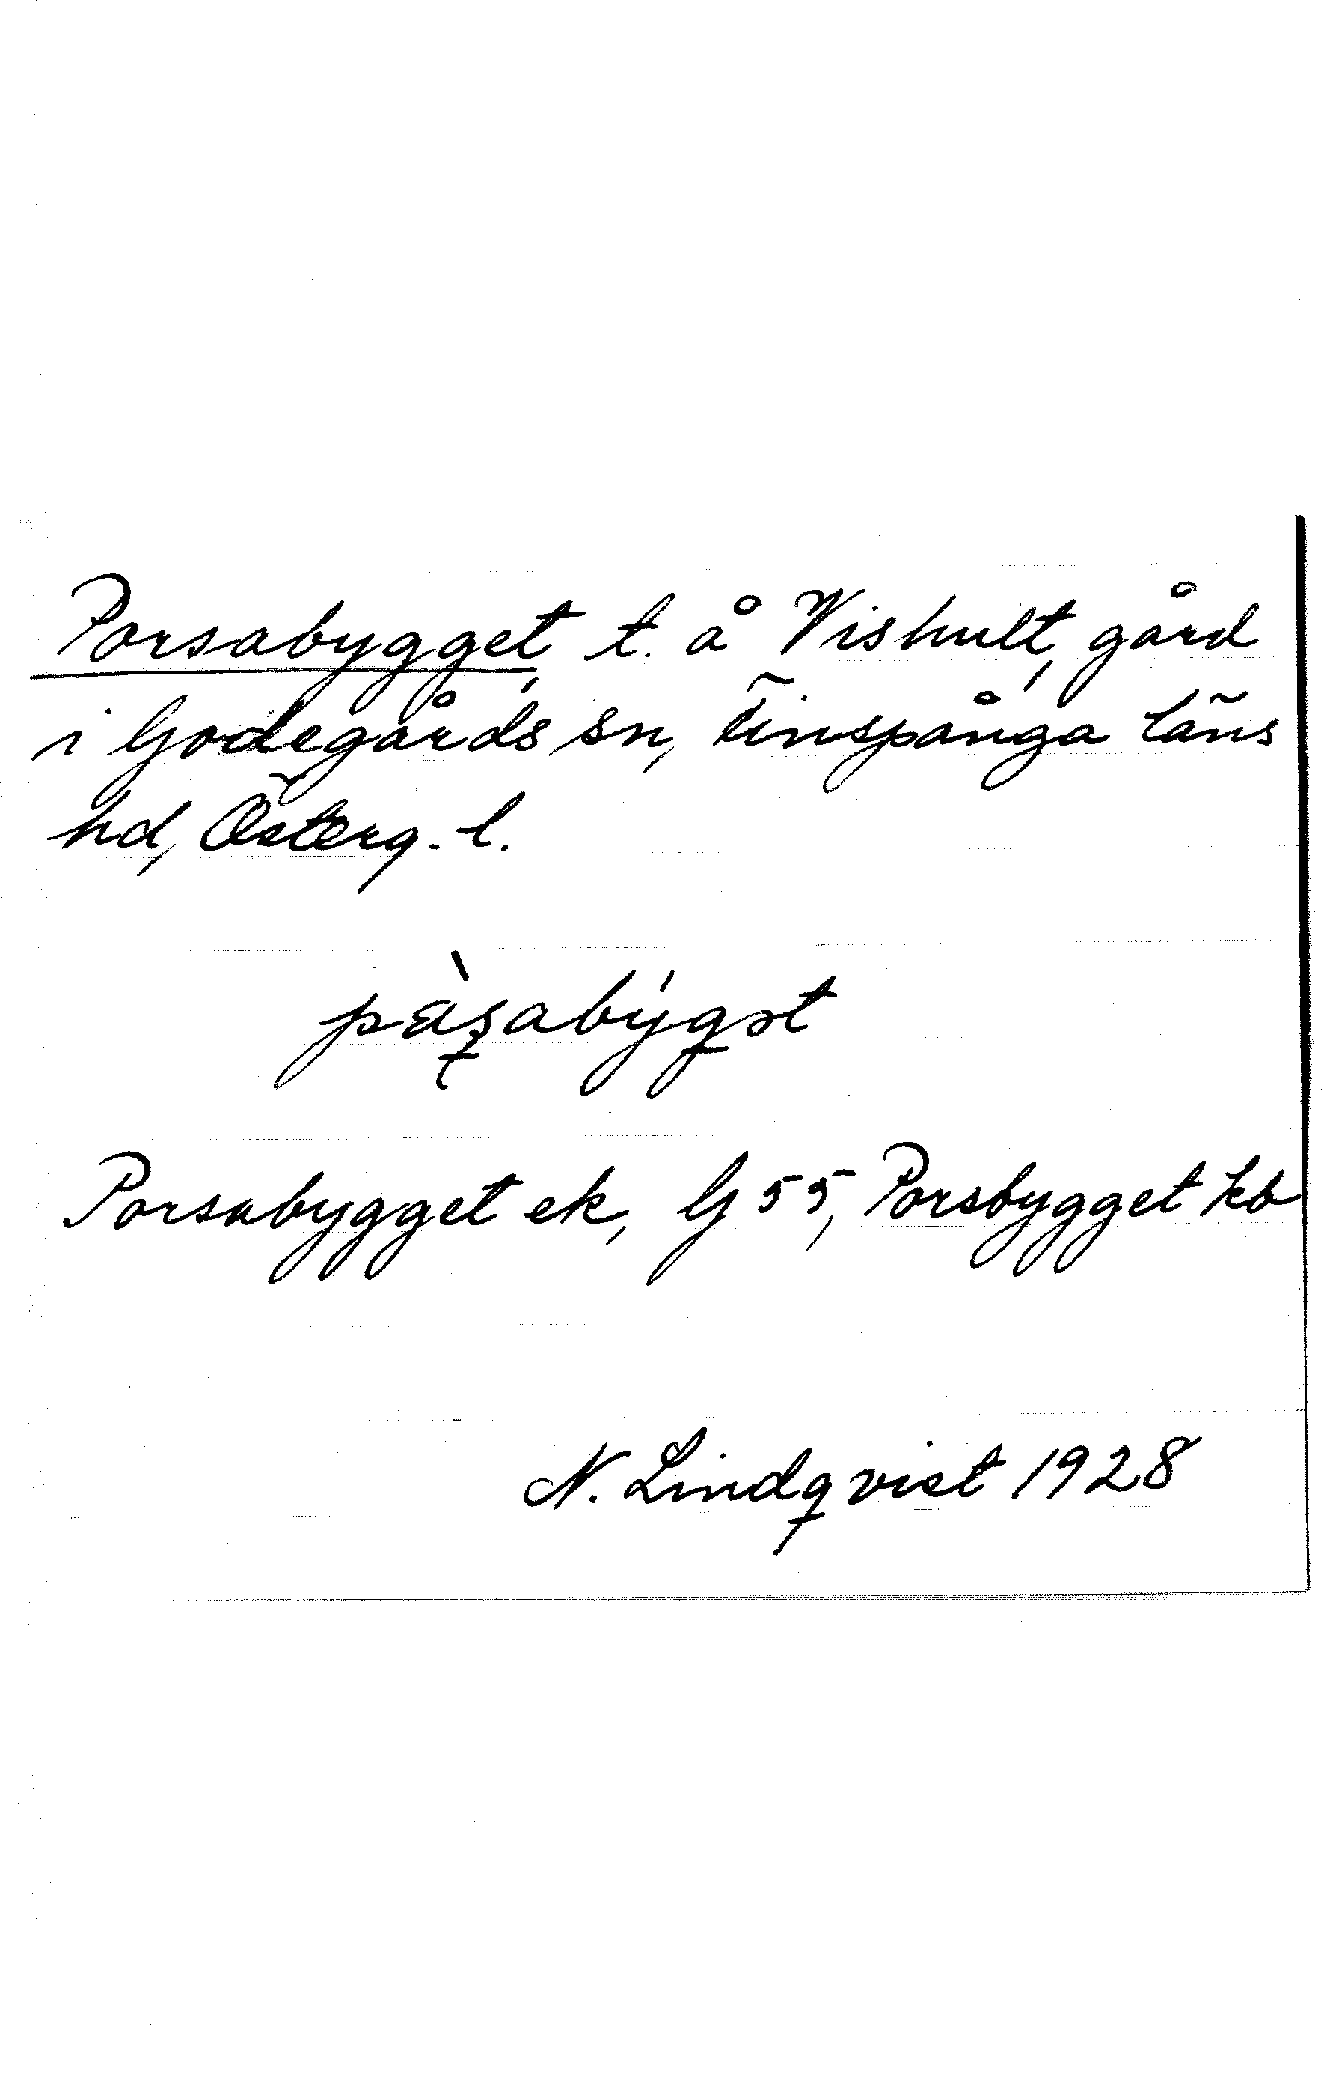 Porsabygget, t. å Vishult, gård
i Godegårds sn, Finspånga läns
hd, Österg. l.
Porsabygget ek, G 55, Porsbygget kb
N. Lindqvist 1928